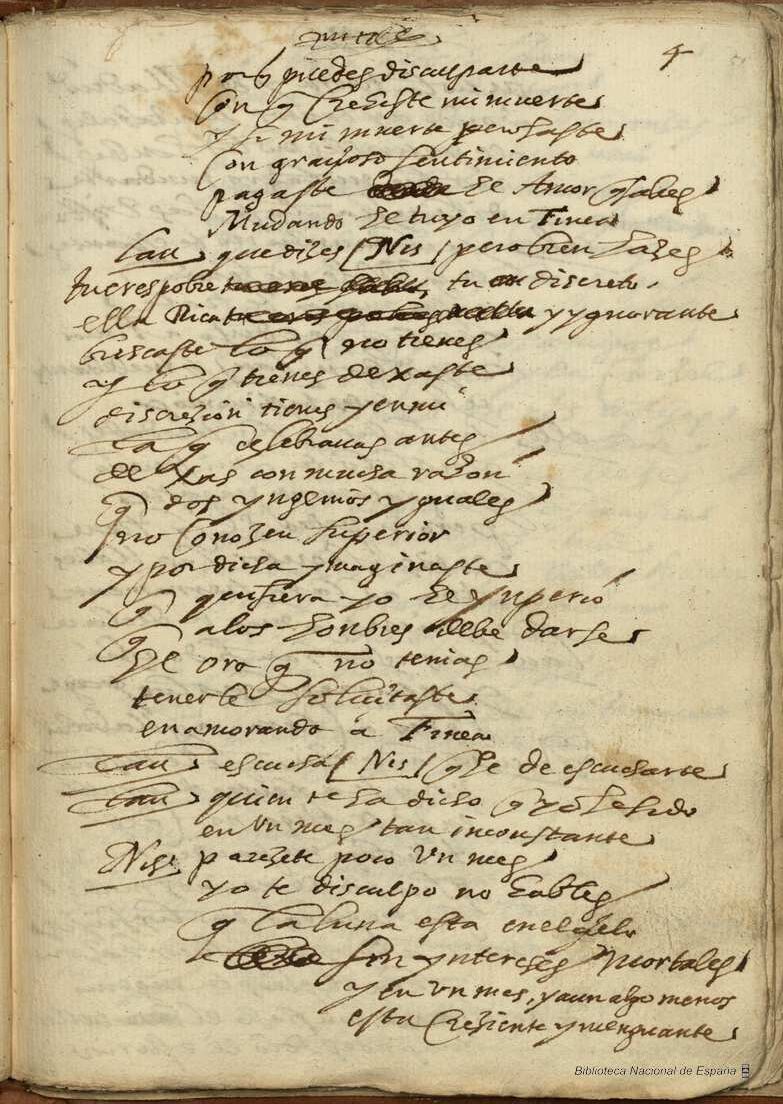 4
por q̃ puedes disculparte
con q̃ creiste mi muerte
y si mi muerte pensaste
con graçioso sentimiento
pagaste el Amor q̃ sabes
Mudando el tuyo en Finea
Lau que dizes [Nis] pero bien hazes
tu eres pobre tu discreto
ella Rica y ygnorante
buscaste lo q̃ no tienes
y lo q̃ tienes dexaste
discreçion tienes y en mi
la q̃ celebrauas antes
dexas con mucha razon
q̃ dos yngenios yguales
no conozen superior
y por dicha ymaginaste
q̃ quisiera yo el ynperio
q̃ a los honbres debe darse
el oro q̃ no tenias
tenerle solicitaste
enamorando a Finea
Lau escucha [Nis] q̃ he de escucharte
Lau quien te ha dicho q̃ yo he sido
en vn mes tan inconstante
Nise pareçete poco vn mes
yo te disculpo no hables
q̃ la luna esta en el çielo
sin yntereses mortales
y en vn mes, y aun algo menos
esta creziente y menguante
Biblioteca Nacional de España